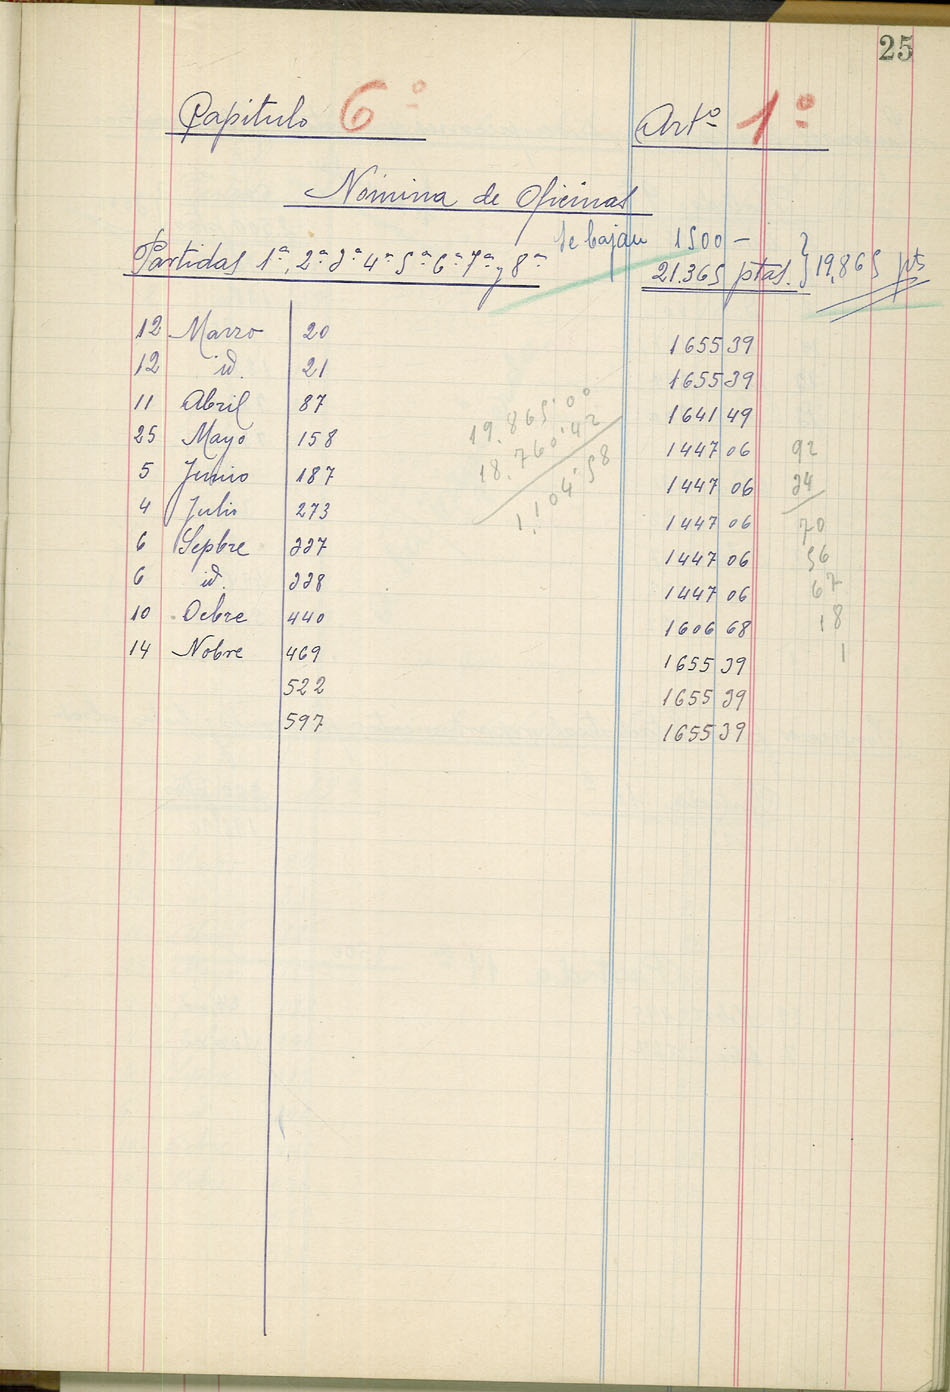 25
Capitulo 6º Artº 1º
Nómina de Oficinas
Se bajan 1500 —
Partidas 1ª, 2ª 3ª 4ª 5ª 6ª 7ª y 8ª 21.365 ptas. } 19,865 pts
12 Marzo 20 1655 39
12 id. 21 1655 39
11 Abril 87 1641 49
25 Mayo 158 1447 06
5 Junio 187 1447 06
4 Julio 273 1447 06
6 Sepbre 337 1447 06
6 id. 338 1447 06
10 Ocbre 440 1606 68
14 Nobre 469 1655 39
522 1655 39
597 1655 39
19.865'00
18.760'42
1,104'58
92
34
70
56
67
18
1